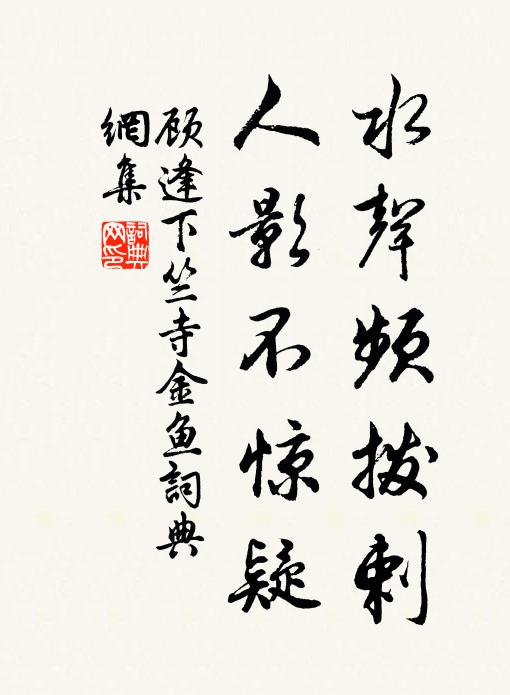 水聲頻撥剌
人影不惊疑
顾逢下竺寺金鱼詞典
網集
詞典网印